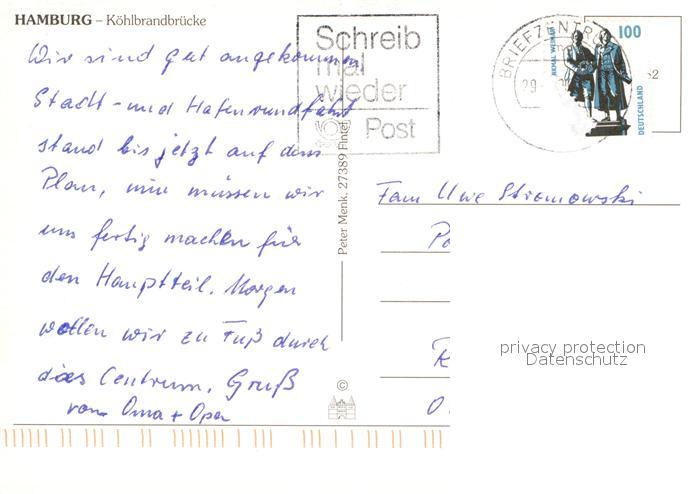 HAMBURG – Köhlbrandbrücke
Wir sind gut angekommen
Stadt- und Hafenrundfahrt
stand bis jetzt auf dem
Plan, nun müssen wir
uns fertig machen für
den Hauptteil. Morgen
wollen wir zu Fuß durch
das Centrum. Gruß
von Oma + Opa
Schreib
mal
wieder
Post
Peter Menk, 27389 Fintel
©
BRIEFZENTRUM
29.
100
DEUTSCHLAND
Fam Uwe Stromowski
privacy protection
Datenschutz